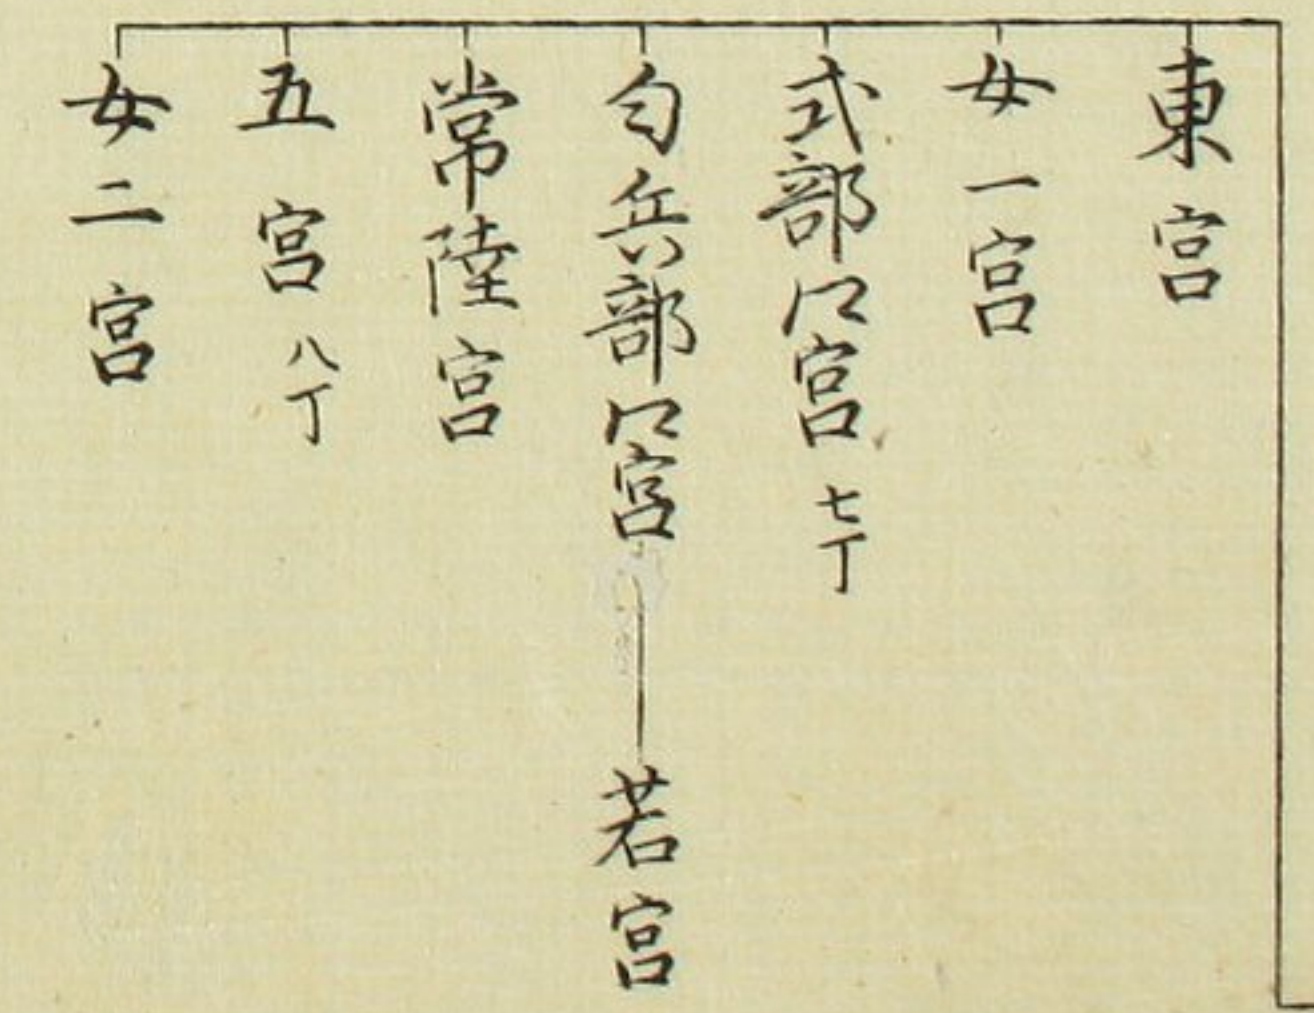 東宮
女一宮
式部卿宮 七丁
匂兵部卿宮 若宮
常陸宮
五宮 八丁
女二宮